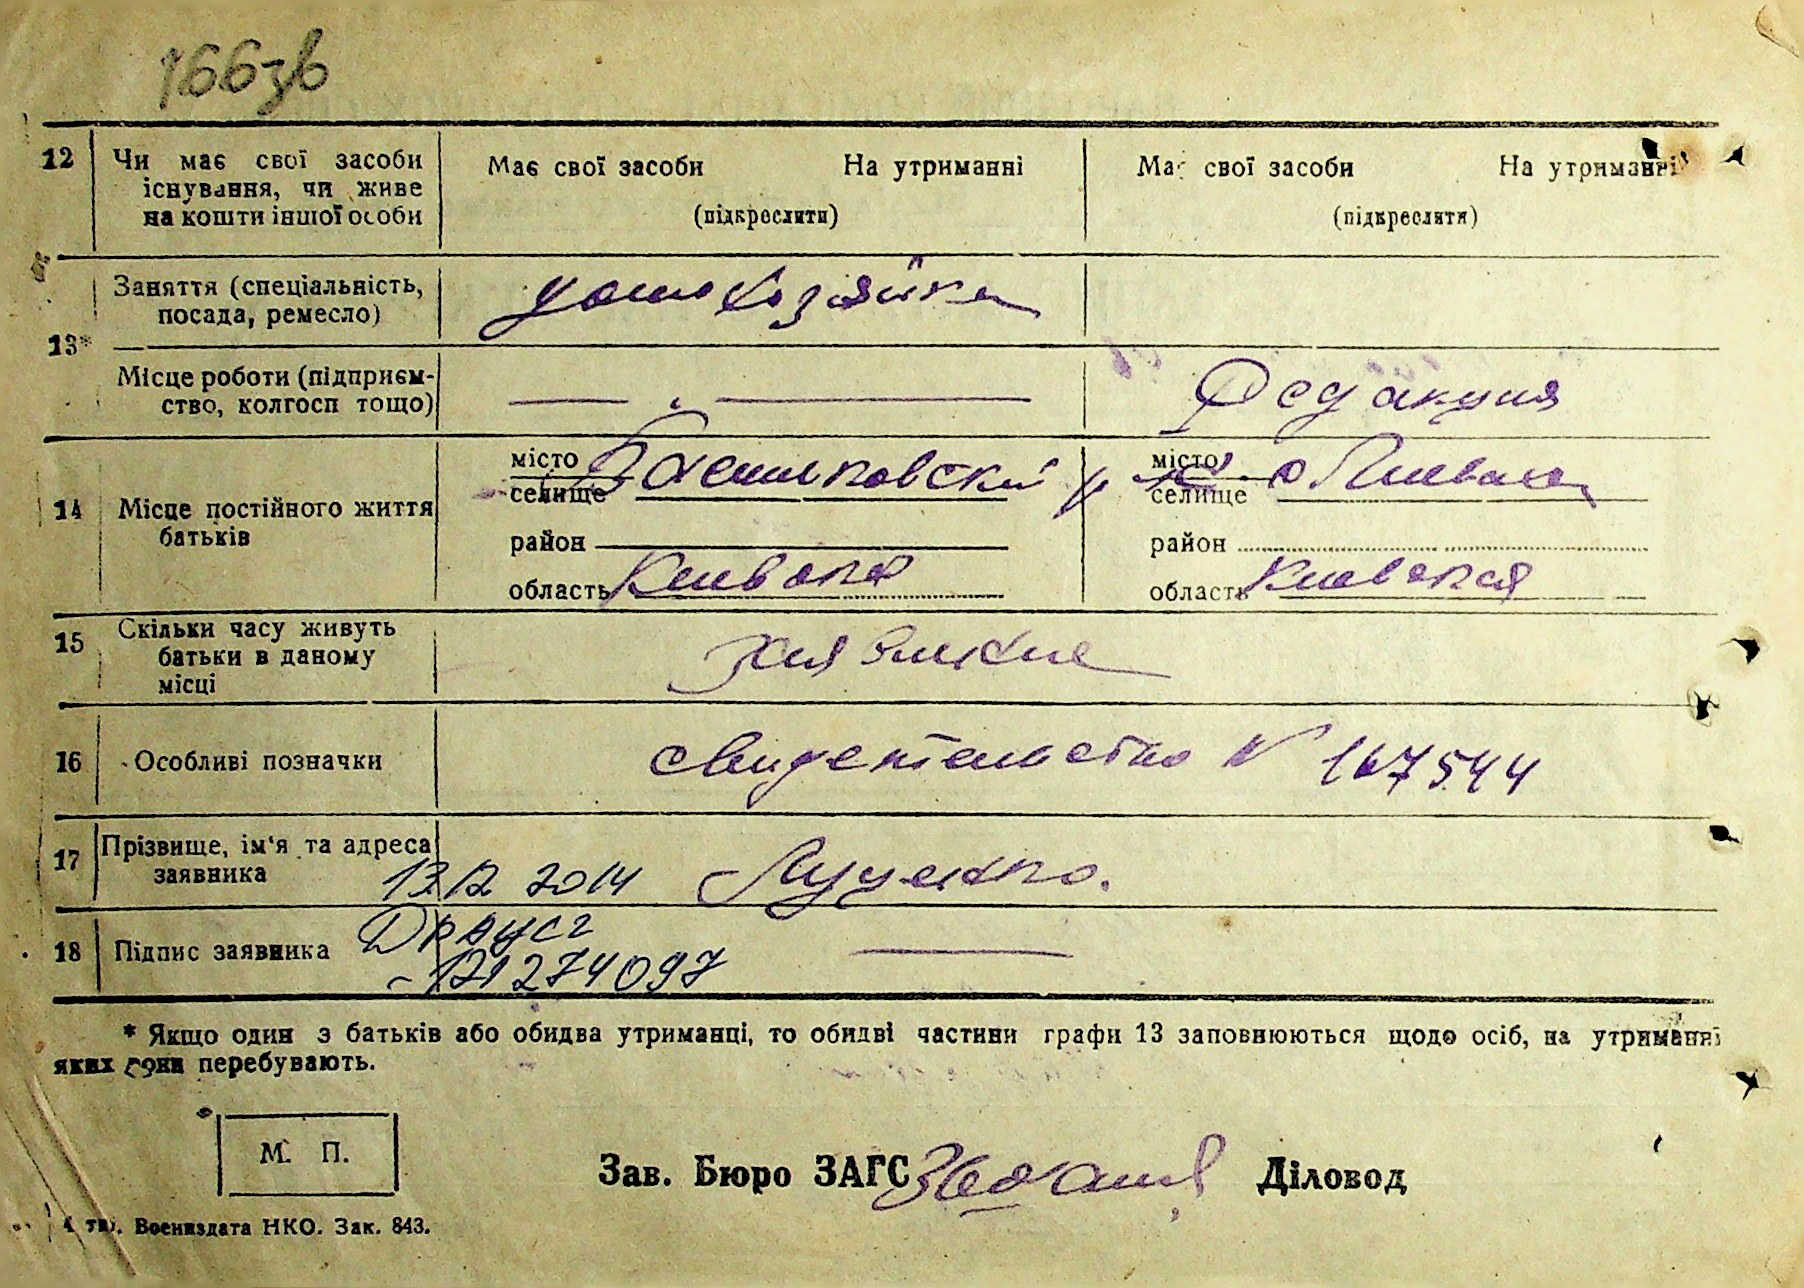 166зв
12 Чи має свої засоби існування, чи живе на кошти іншої особи
Має свої засоби На утриманні
(підкреслити)
Має свої засоби На утриманні
(підкреслити)
13*
Заняття (спеціальність, посада, ремесло)
домохозяйка
Місце роботи (підприємство, колгосп тощо)
— " —
Редакция
14 Місце постійного життя батьків
місто
селище
район
область Киевская
місто
селище
район
область Киевская
15 Скільки часу живуть батьки в даному місці
16 Особливі позначки
свидетельство № 167544
17 Прізвище, ім'я та адреса заявника
13.12 2014
Луценко.
18 Підпис заявника
* Якщо один з батьків або обидва утриманці, то обидві частини графи 13 заповнюються щодо осіб, на утриманні
яких вони перебувають.
М. П.
Зав. Бюро ЗАГС Діловод
4 тип. Воениздата НКО. Зак. 843.